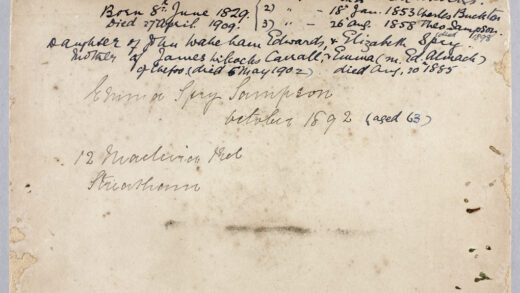 Born 8th June 1829. 2) " - 18th Jan. 1853 Charles Buckton
Died 27 April 1909. 3) " - 26 Aug. 1858 Theo. Sampson.
died 1898
Daughter of John Wakeham Edwards, & Elizabeth Spry.
Mother of James Carrall, & Emma (m. Ed. Almack)
of Chefoo, (died 5 May 1902) died Aug. 10 1885
Emma Spry Sampson
October 1892 (aged 63)
12 Madeira Rd
Streatham